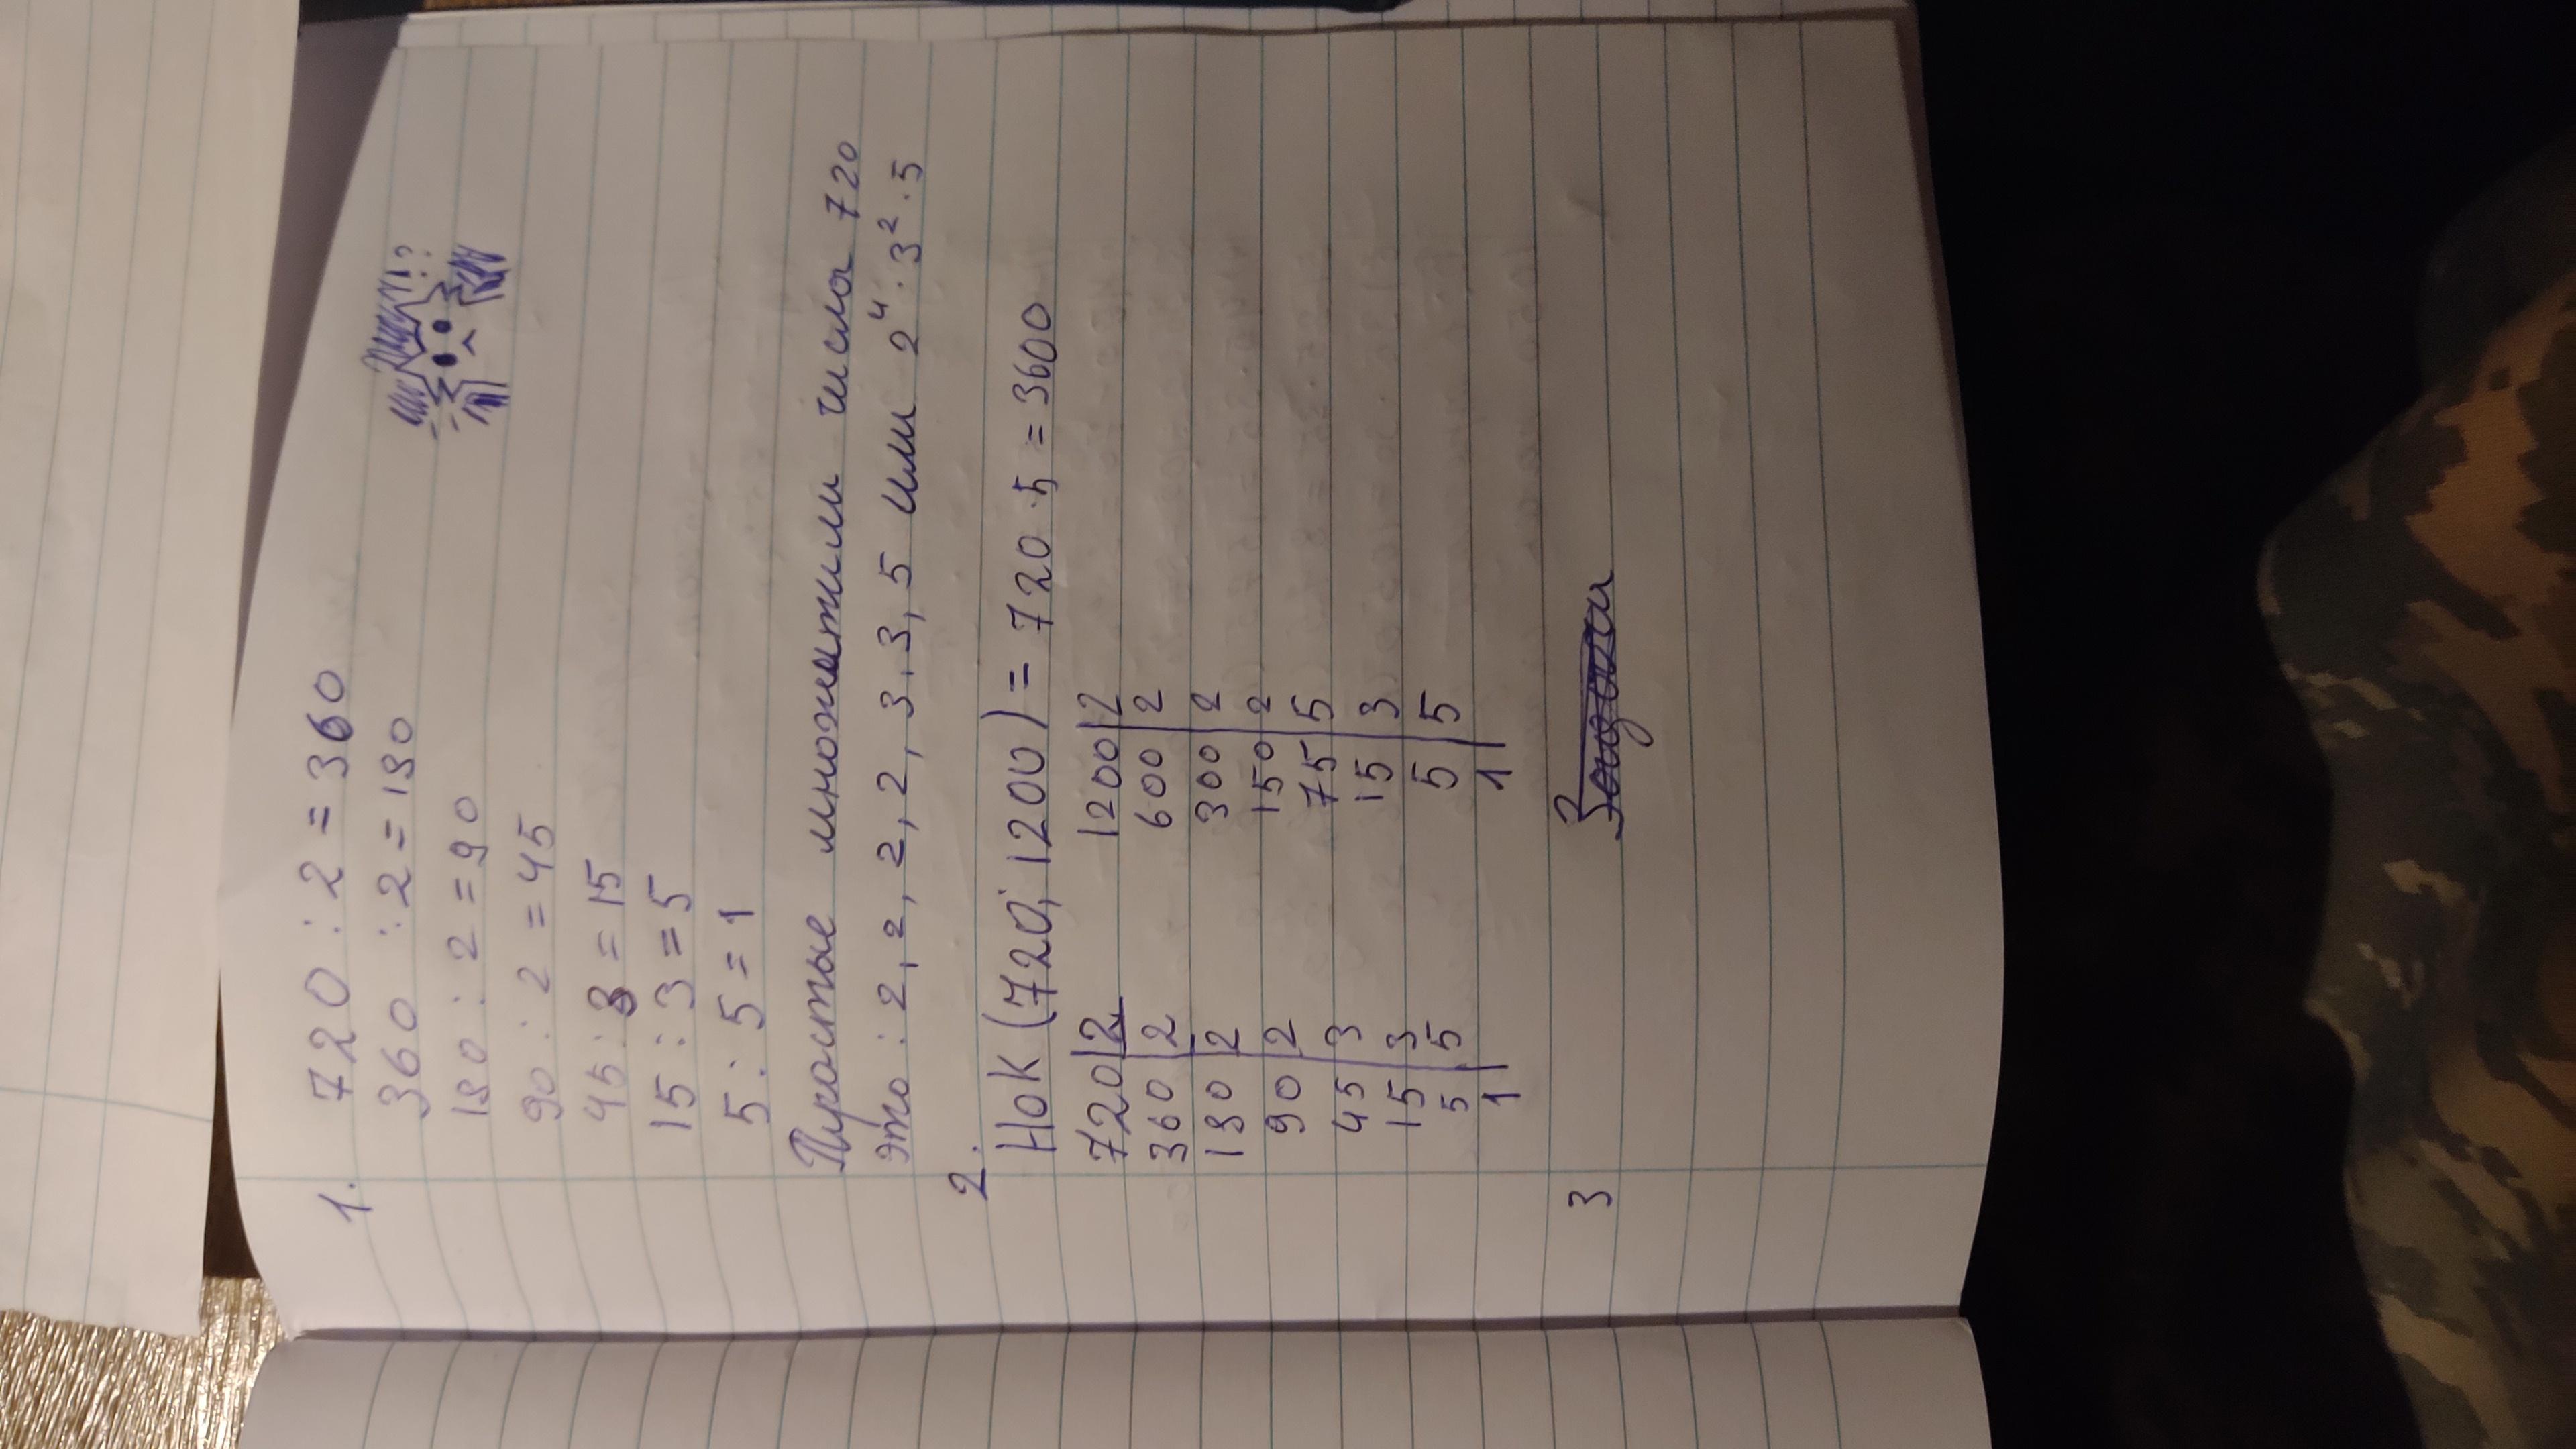 1. 720 : 2 = 360
360 : 2 = 180
180 : 2 = 90
90 : 2 = 45
45 : 3 = 15
15 : 3 = 5
5 : 5 = 1
!?
Простые множители числа 720
это : 2, 2, 2, 2, 3, 3, 5 или 2⁴ · 3² · 5
2.
НОК (720; 1200) = 720 · 5 = 3600
720 | 2 1200 | 2
360 | 2 600 | 2
180 | 2 300 | 2
90 | 2 150 | 2
45 | 3 75 | 5
15 | 3 15 | 3
5 | 5 5 | 5
1 | 1 |
3